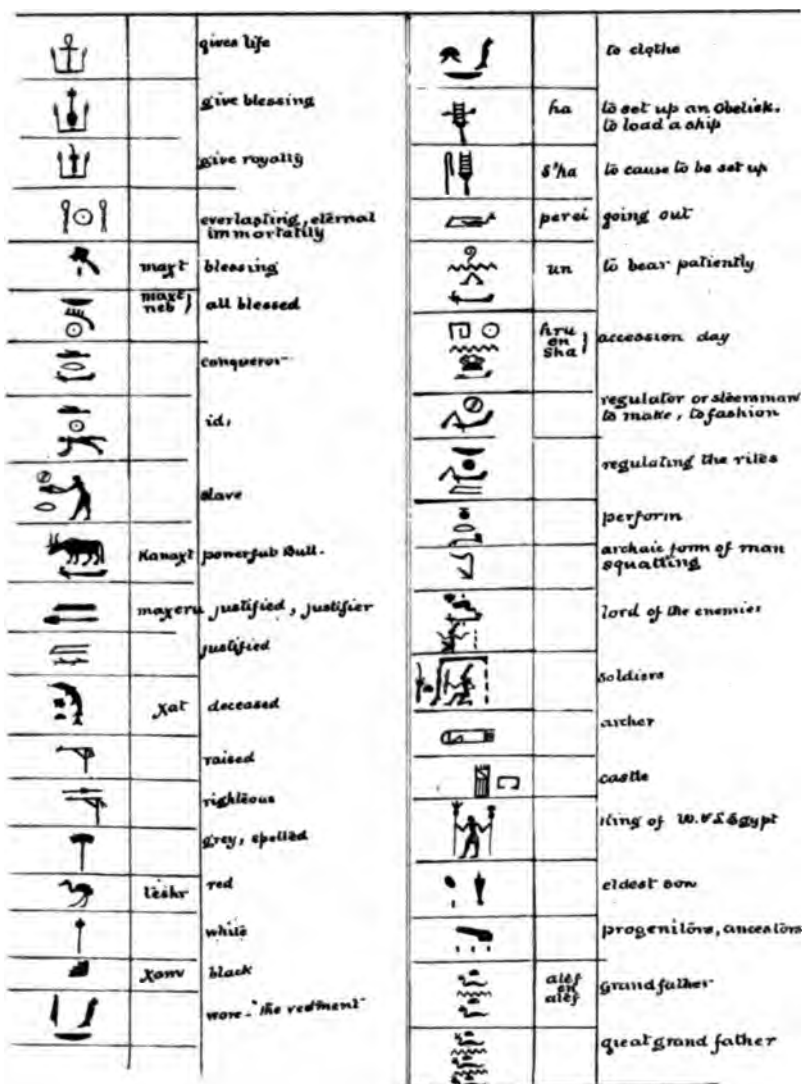 gives life
give blessing
give royalty
everlasting, eternal
immortatily
maxt blessing
maxt
neb } all blessed
conqueror
id,
slave
Kanaxt powerful Bull.
maxeru justified, justifier
justified
xat deceased
raised
righteous
grey, spelled
teshr red
white
xanv black
wore - "the vestment"
to clothe
ha to set up an Obelisk.
to load a ship
s'ha to cause to be set up
perei going out
un to bear patiently
hru
en
sha } accession day
regulator or steersman
to make, to fashion
regulating the rites
perform
archaic form of man
squatting
lord of the enemies
soldiers
archer
castle
King of U. & L. Egypt
eldest son
progenitors, ancestors
atef
en
atef grandfather
great grand father